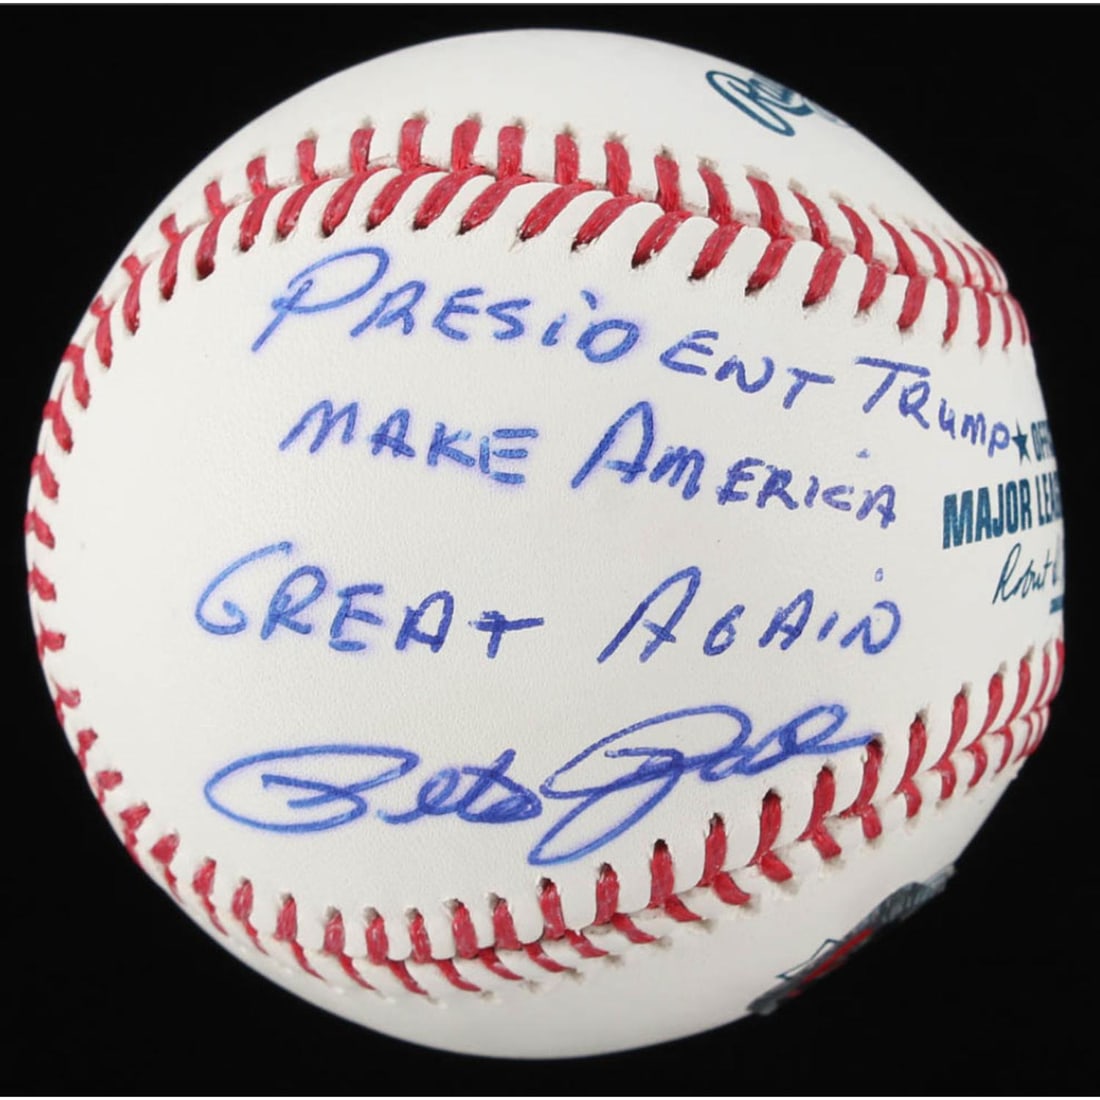 PRESIDENT TRUMP
MAKE AMERICA
GREAT AGAIN
Pete Rose
MAJOR